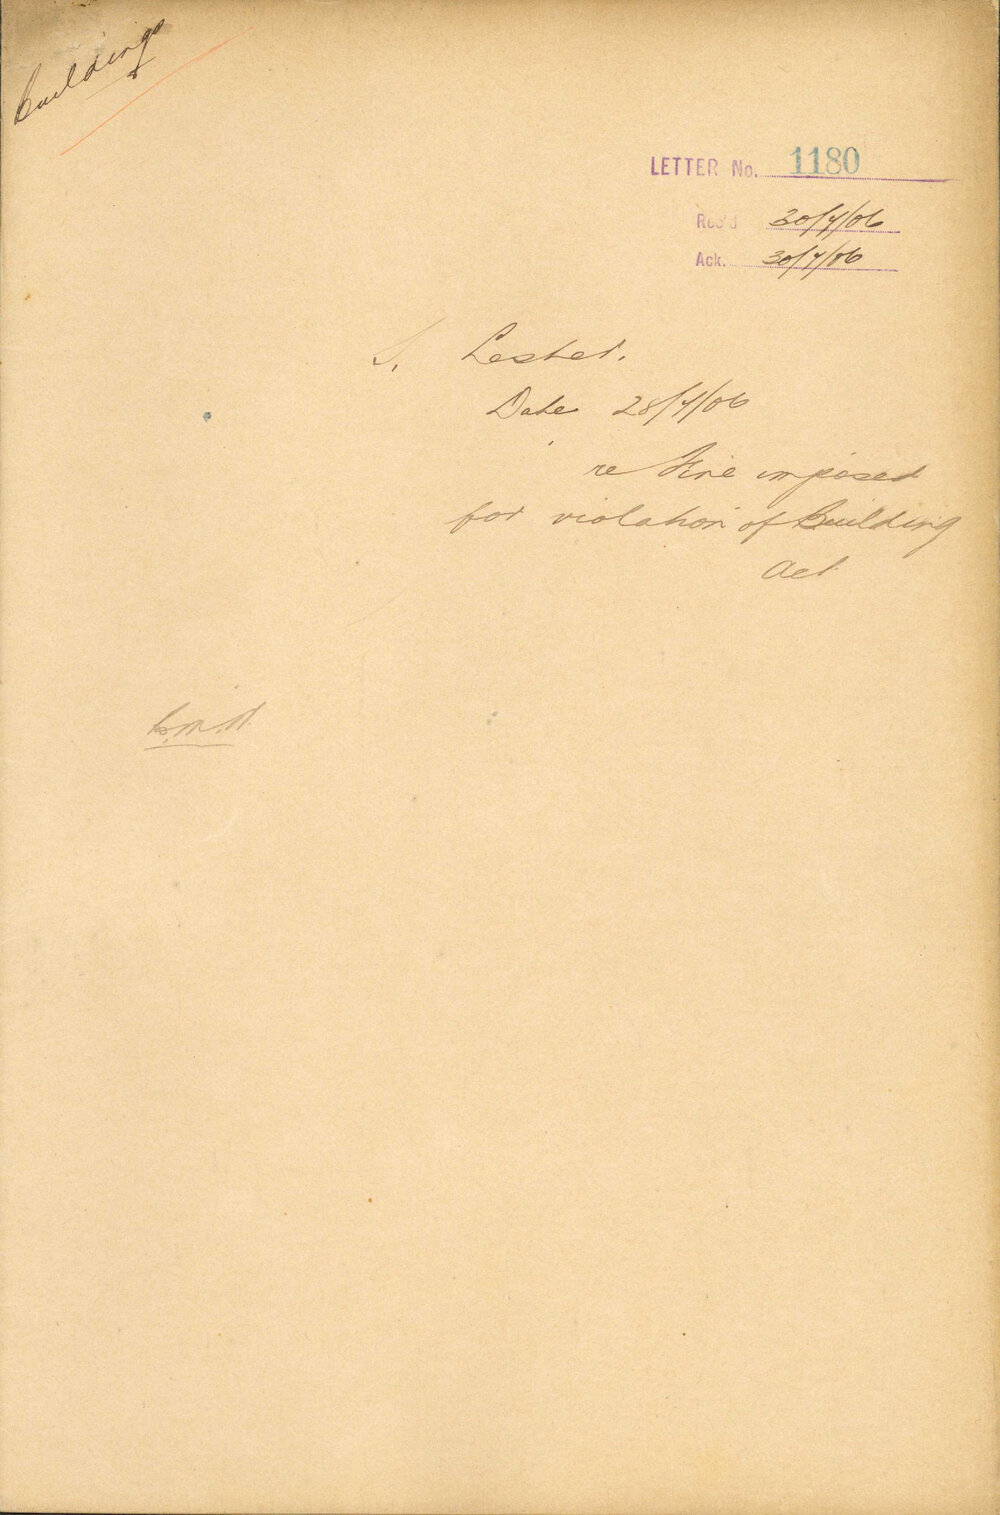 Buildings
LETTER No. 1180
Rec'd 30/4/06
Ack. 30/4/06
S. Lester.
Date 28/4/06
re Fine imposed
for violation of Building
Act